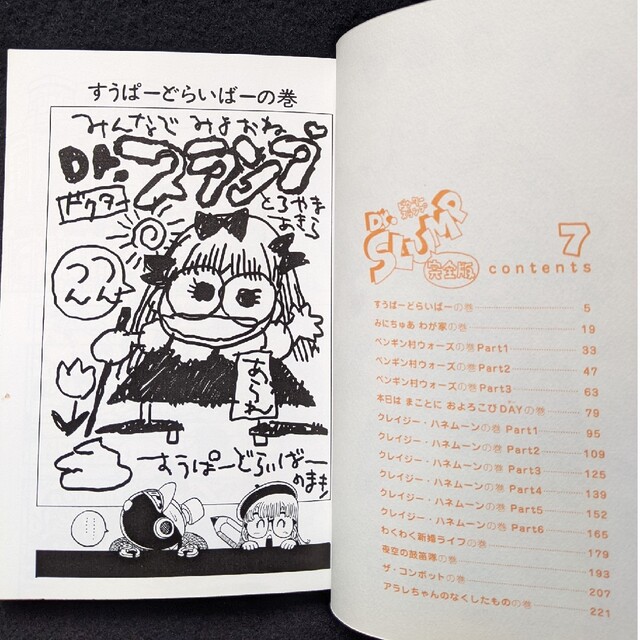 すうぱーどらいばーの巻
みんなで みよおね
Dr.スランプ
ドクター
とろやま
あきら
つんつん
あられ
すうぱーどらいばー
のまき
Dr.
SLUMP
完全版
7
contents
すうぱーどらいばーの巻 5
みにちゅあ わが家の巻 19
ペンギン村ウォーズの巻 Part1 33
ペンギン村ウォーズの巻 Part2 47
ペンギン村ウォーズの巻 Part3 63
本日は まことに およろこびDAYの巻 79
クレイジー・ハネムーンの巻 Part1 95
クレイジー・ハネムーンの巻 Part2 109
クレイジー・ハネムーンの巻 Part3 125
クレイジー・ハネムーンの巻 Part4 139
クレイジー・ハネムーンの巻 Part5 152
クレイジー・ハネムーンの巻 Part6 165
わくわく新婚ライフの巻 179
夜空の鼓笛隊の巻 193
ザ・コンボットの巻 207
アラレちゃんのなくしたものの巻 221